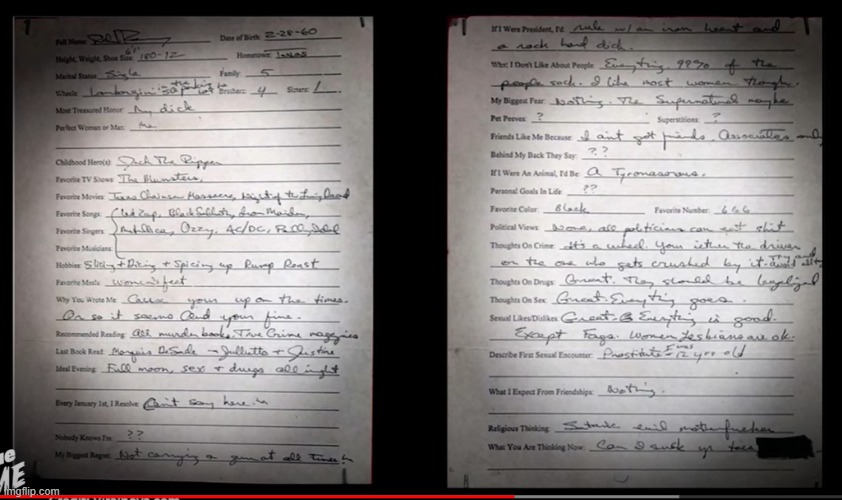 Full Name: Date of Birth: 2-28-60
Height, Weight, Shoe Size: 6'1" 180-12 Hometown: Texas
Marital Status: Single Family: 5
Wheels: Lamborgini in the parking lot Brothers: 4 Sisters: 1
Most Treasured Honor: My dick
Perfect Woman or Man: me
Childhood Hero(s): Jack The Ripper
Favorite TV Shows: The Munsters,
Favorite Movies: Texas Chainsaw Massacre, Night of the Living Dead
Favorite Songs: Led Zep, Black Sabbath, Iron Maiden,
Favorite Singers: Metallica, Ozzy, AC/DC, Billy Idol
Favorite Musicians:
Hobbies: Slicing + Dicing + Spicing up Rump Roast
Favorite Meals: women's feet
Why You Wrote Me: Cause your up on the times.
Or so it seems And your fine.
Recommended Reading: All murder books, True Crime magazines
Last Book Read: Marquis DeSade → Julliette + Justine
Ideal Evening: Full moon, sex + drugs all night
Every January 1st, I Resolve: Can't say here.
Nobody Knows I'm: ??
My Biggest Regret: Not carrying a gun at all times
If I Were President, I'd: rule w/ an iron heart and
a rock hard dick.
What I Don't Like About People: Everything. 99% of the
people suck. I like most women though.
My Biggest Fear: Nothing. The Supernatural maybe
Pet Peeves: ? Superstitions: ?
Friends Like Me Because: I aint got friends. Associates only
Behind My Back They Say: ??
If I Were An Animal, I'd Be: A Tyronasorous.
Personal Goals In Life: ??
Favorite Color: Black Favorite Number: 666
Political Views: None, all politicians can eat shit
Thoughts On Crime: It's a wheel. Your iether the driver
or the one who gets crushed by it. Try and avoid
Thoughts On Drugs: Great. They should be legalized
Thoughts On Sex: Great. Everything goes.
Sexual Likes/Dislikes: Great. Everything is good.
Except Fags. Women Lesbians are ok.
Describe First Sexual Encounter: Prostitute - I was 12 yrs old
What I Expect From Friendships: Nothing.
Religious Thinking: Satanic evil motherfucker
What You Are Thinking Now: Can I suck yr toes
imgflip.com